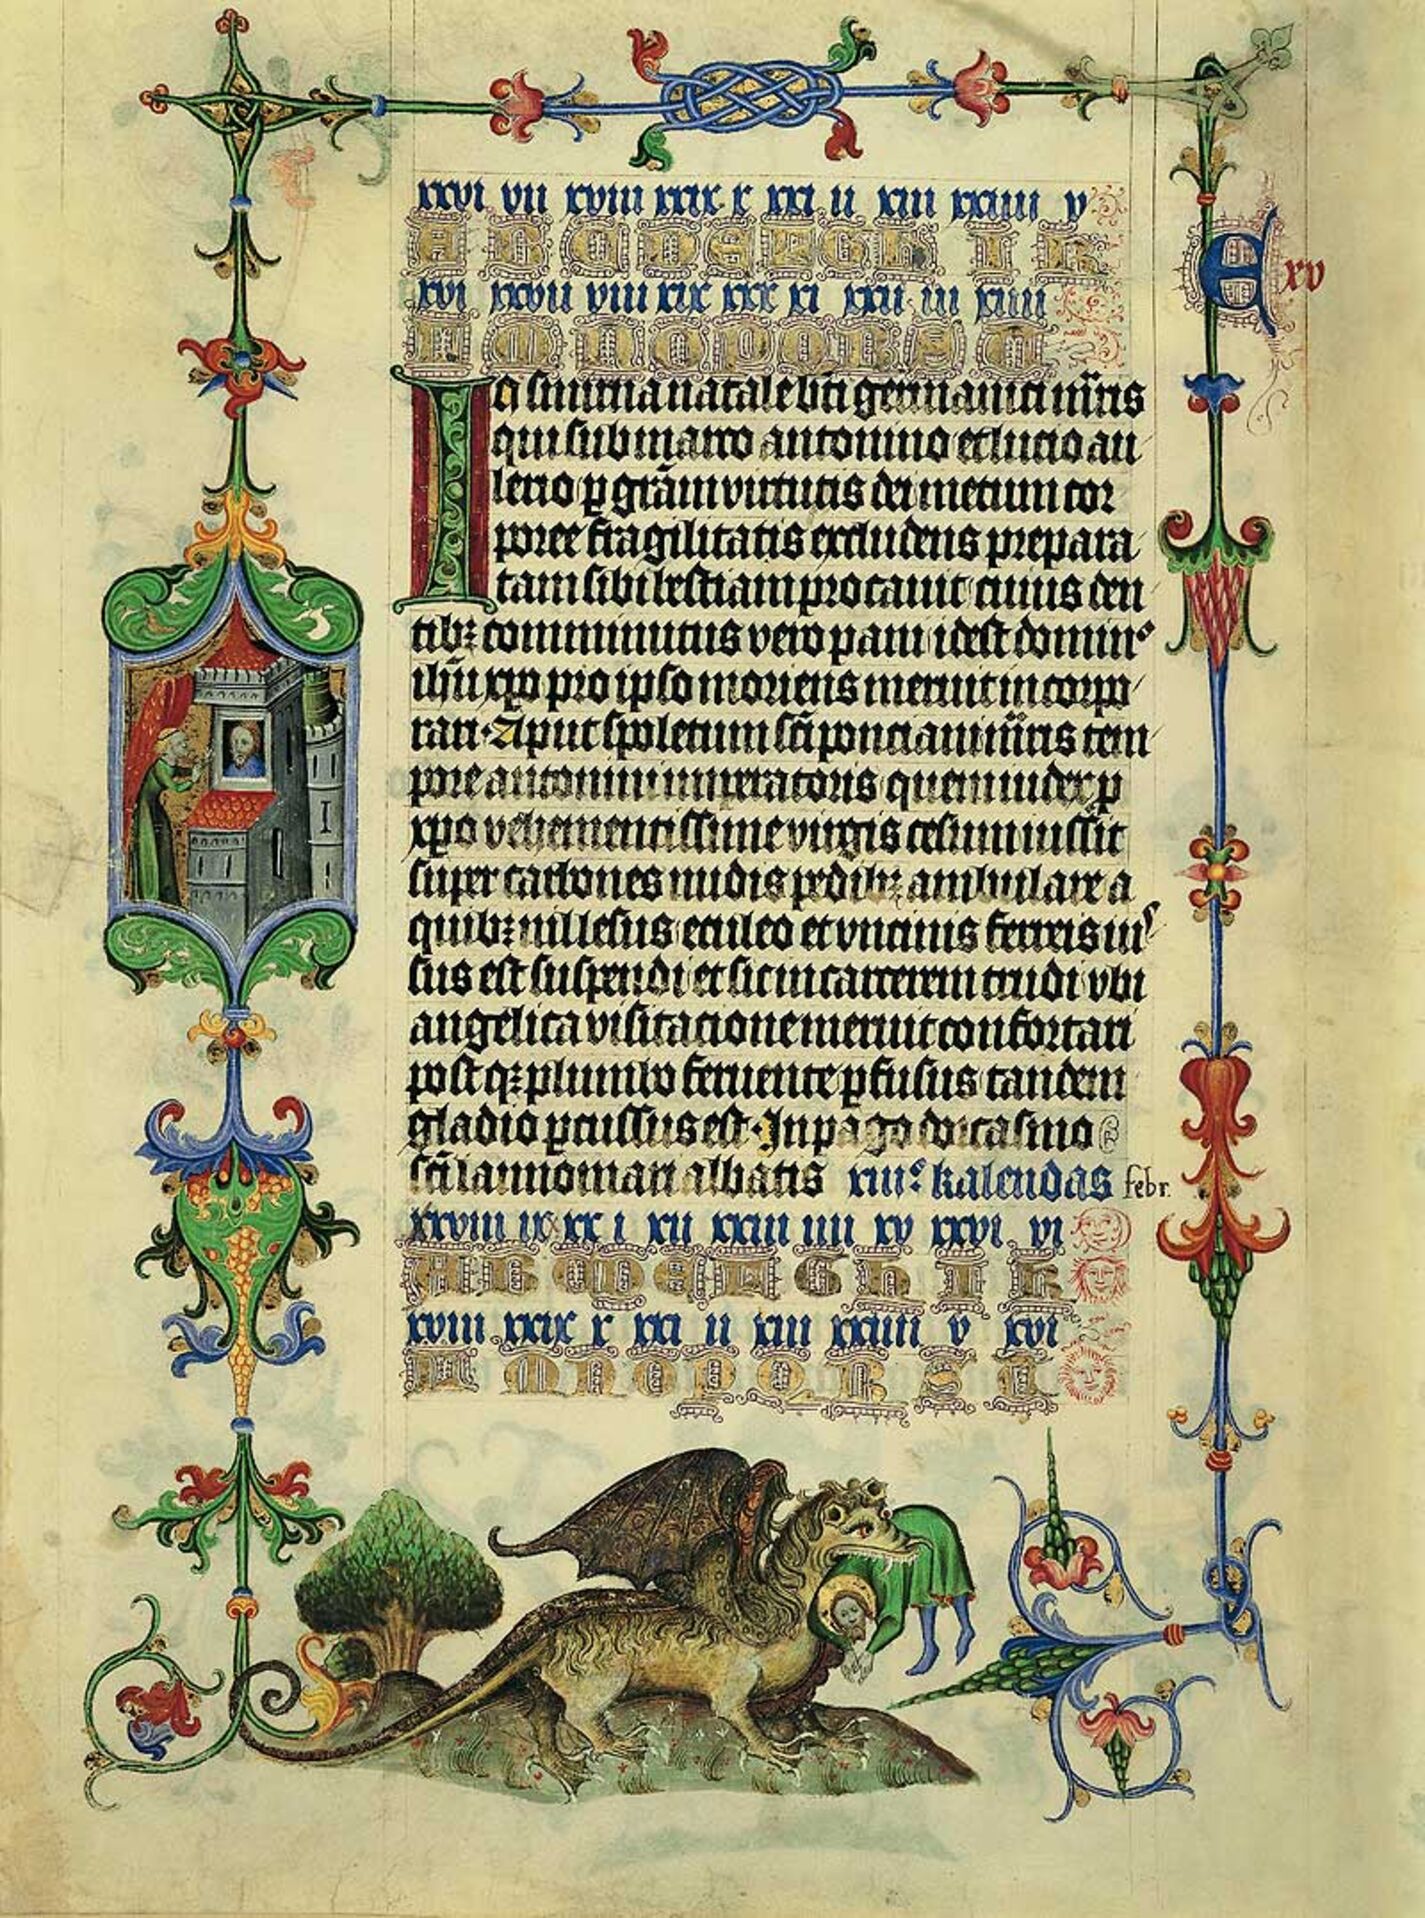 xxvi vii xviii xxix x xxi ii xiii xxiiii v
A B C D E F G H I K
e xv
xvi xxvii viii xix xxx xi xxii iii xiiii
M N O P Q R S T
In smirna natale bti germanici mr̄is
qui sub marco antonino et lucio au
relio p grām virtutis dei metum cor
poree fragilitatis excludens prepara
tam sibi bestiam procauit cuius den
tibꝫ comminutus vero pani idest domino
ihū xpo pro ipso moriens meruit incorpo
rari · Aput spoletum sc̄i ponciani mr̄is tem
pore antonini imperatoris quem iudex p
xpo vehementissime virgis cesum iussit
super carbones nudis pedibꝫ ambulare a
quibꝫ nil lesus eculeo et vncinis ferreis ius
sus est suspendi et sic in carcerem trudi vbi
angelica visitacione meruit confortari
postqꝫ plumbo feruente pfusus tandem
gladio pcussus est · In pago dorcasino
sc̄i launomari abbatis xiiiº kalendas febr.
xxviii ix xx i xii xxiii iiii xv xxvi vi
A B C D E F G H I K
xviii xxix x xxi ii xiii xxiiii v xvi
M N O P Q R S T